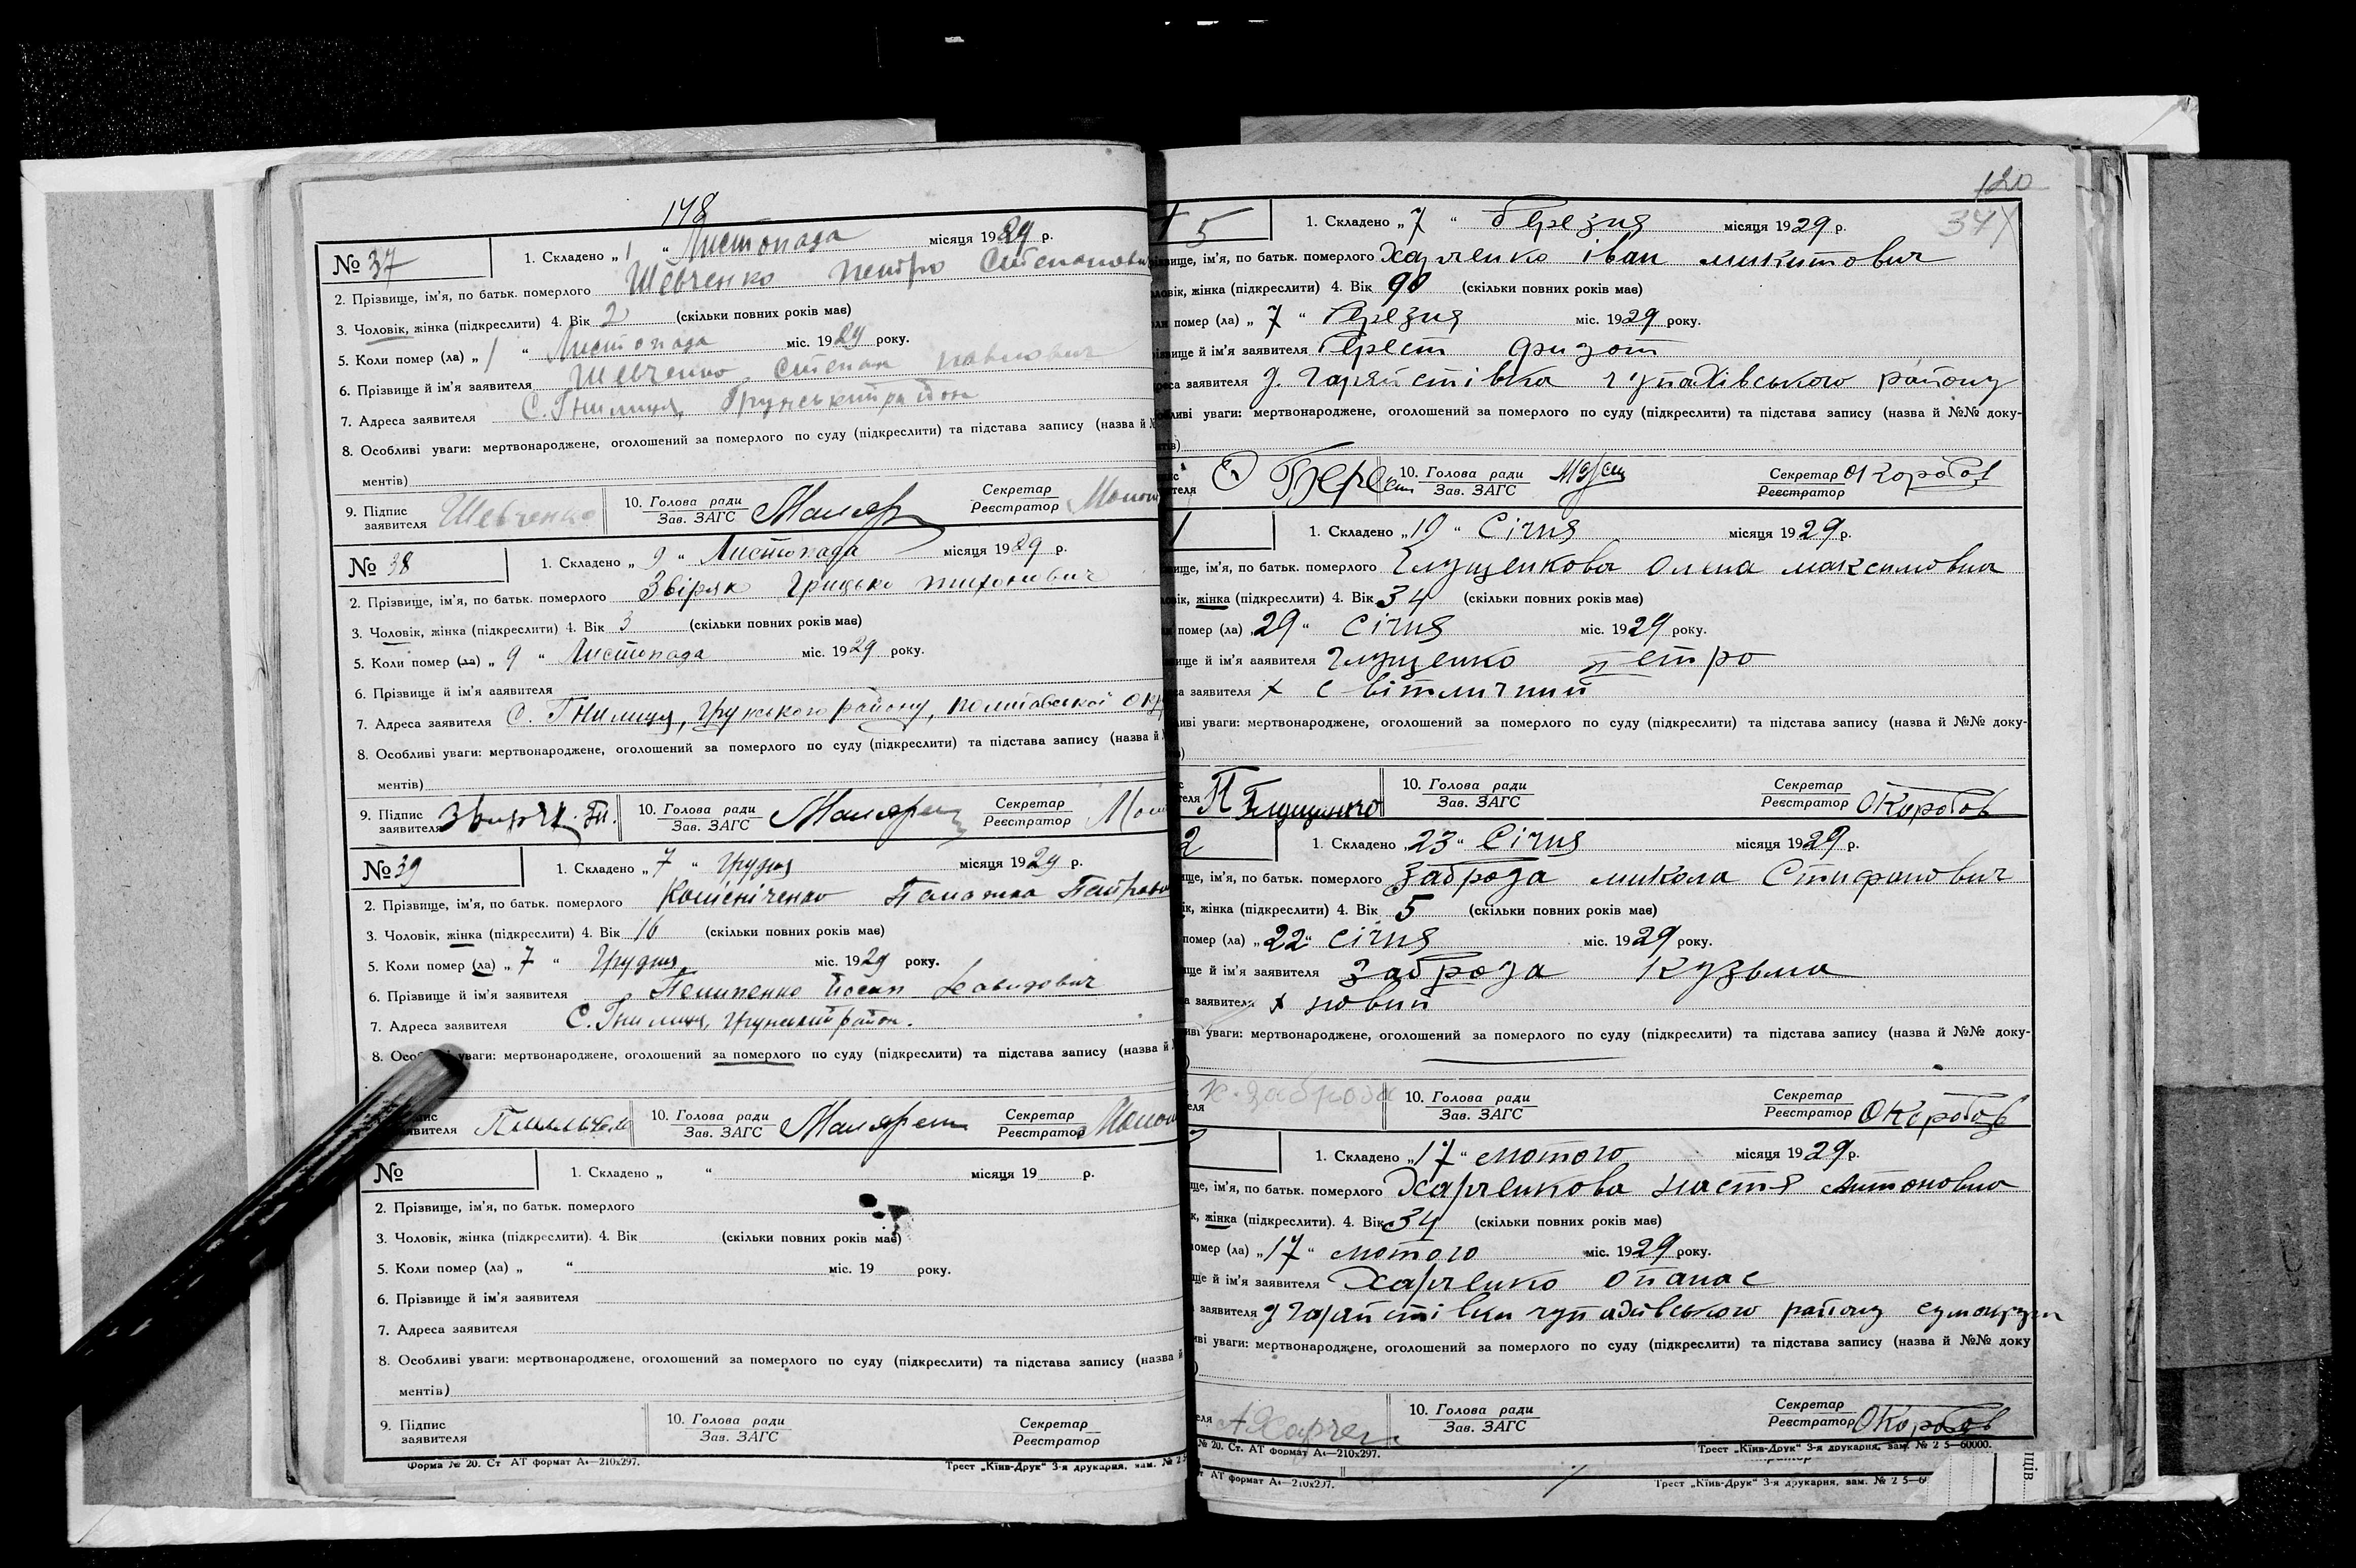 178
№ 37
1. Складено „ 1 “ Листопада місяця 1929 р.
2. Прізвище, ім'я, по батьк. померлого Шевченко Петро Степанови
3. Чоловік, жінка (підкреслити) 4. Вік 2 (скільки повних років має)
5. Коли помер (ла) „ 1 “ Листопада міс. 1929 року.
6. Прізвище й ім'я заявителя Шевченко Степан Павлович
7. Адреса заявителя С. Гнилиця, Грунський район
8. Особливі уваги: мертвонароджене, оголошений за померлого по суду (підкреслити) та підстава запису (назва й
ментів)
9. Підпис заявителя Шевченко 10. Голова ради Зав. ЗАГС Секретар Реєстратор
№ 38
1. Складено „ 9 “ Листопада місяця 1929 р.
2. Прізвище, ім'я, по батьк. померлого Звіряк Грицько тихонович
3. Чоловік, жінка (підкреслити) 4. Вік 3 (скільки повних років має)
5. Коли помер (ла) „ 9 “ Листопада міс. 1929 року.
6. Прізвище й ім'я заявителя
7. Адреса заявителя С. Гнилиця, Грунського району, полтавської окр
8. Особливі уваги: мертвонароджене, оголошений за померлого по суду (підкреслити) та підстава запису (назва й
ментів)
9. Підпис заявителя 10. Голова ради Зав. ЗАГС Секретар Реєстратор
№ 39
1. Складено „ 7 “ Грудня місяця 1929 р.
2. Прізвище, ім'я, по батьк. померлого
3. Чоловік, жінка (підкреслити) 4. Вік 16 (скільки повних років має)
5. Коли помер (ла) „ 7 “ Грудня міс. 1929 року.
6. Прізвище й ім'я заявителя Пелипенко Йосип Давидович
7. Адреса заявителя С. Гнилиця, Грунський район.
8. уваги: мертвонароджене, оголошений за померлого по суду (підкреслити) та підстава запису (назва й
10. Голова ради Зав. ЗАГС Секретар Реєстратор
№
1. Складено „ “ місяця 19 р.
2. Прізвище, ім'я, по батьк. померлого
3. Чоловік, жінка (підкреслити). 4. Вік (скільки повних років має)
5. Коли помер (ла) „ “ міс. 19 року.
6. Прізвище й ім'я заявителя
7. Адреса заявителя
8. Особливі уваги: мертвонароджене, оголошений за померлого по суду (підкреслити) та підстава запису (назва й
ментів)
9. Підпис заявителя 10. Голова ради Зав. ЗАГС Секретар Реєстратор
Форма № 20. Ст АТ формат А4—210х297. Трест „Київ-Друк“ 3-я друкарня, зам. № 2
120
347
5
1. Складено „ 7 “ Березня місяця 1929 р.
ім'я, по батьк. померлого Харченко іван микитович
жінка (підкреслити) 4. Вік 90 (скільки повних років має)
помер (ла) „ 7 “ Березня міс. 1929 року.
й ім'я заявителя Берест
заявителя району
уваги: мертвонароджене, оголошений за померлого по суду (підкреслити) та підстава запису (назва й №№ доку-
Берест 10. Голова ради Зав. ЗАГС Секретар Реєстратор О Коробов
1
1. Складено „ 19 “ Січня місяця 1929 р.
ім'я, по батьк. померлого Глущенкова Олена максимовна
жінка (підкреслити) 4. Вік 34 (скільки повних років має)
помер (ла) „ 29 “ Січня міс. 1929 року.
й ім'я заявителя Глущенко Петро
заявителя х Світличний
уваги: мертвонароджене, оголошений за померлого по суду (підкреслити) та підстава запису (назва й №№ доку-
П Глущенко 10. Голова ради Зав. ЗАГС Секретар Реєстратор О Коробов
2
1. Складено „ 23 “ Січня місяця 1929 р.
ім'я, по батьк. померлого Заброда микола Стифанович
жінка (підкреслити) 4. Вік 5 (скільки повних років має)
помер (ла) „ 22 “ Січня міс. 1929 року.
й ім'я заявителя Заброда Кузьма
заявителя х новий
уваги: мертвонароджене, оголошений за померлого по суду (підкреслити) та підстава запису (назва й №№ доку-
К. Заброда 10. Голова ради Зав. ЗАГС Секретар Реєстратор О Коробов
1. Складено „ 17 “ лютого місяця 1929 р.
ім'я, по батьк. померлого Харченкова настя Антоновна
жінка (підкреслити). 4. Вік 34 (скільки повних років має)
помер (ла) „ 17 “ лютого міс. 1929 року.
й ім'я заявителя Харченко Опанас
заявителя району
уваги: мертвонароджене, оголошений за померлого по суду (підкреслити) та підстава запису (назва й №№ доку
А Харчен 10. Голова ради Зав. ЗАГС Секретар Реєстратор О Коробов
№ 20. Ст. АТ формат А4—210х297. Трест „Київ-Друк“ 3-я друкарня, зам. № 2 5—60000.
АТ формат А4—210х297. Трест „Київ-Друк“ 3-я друкарня, зам. № 2 5—6